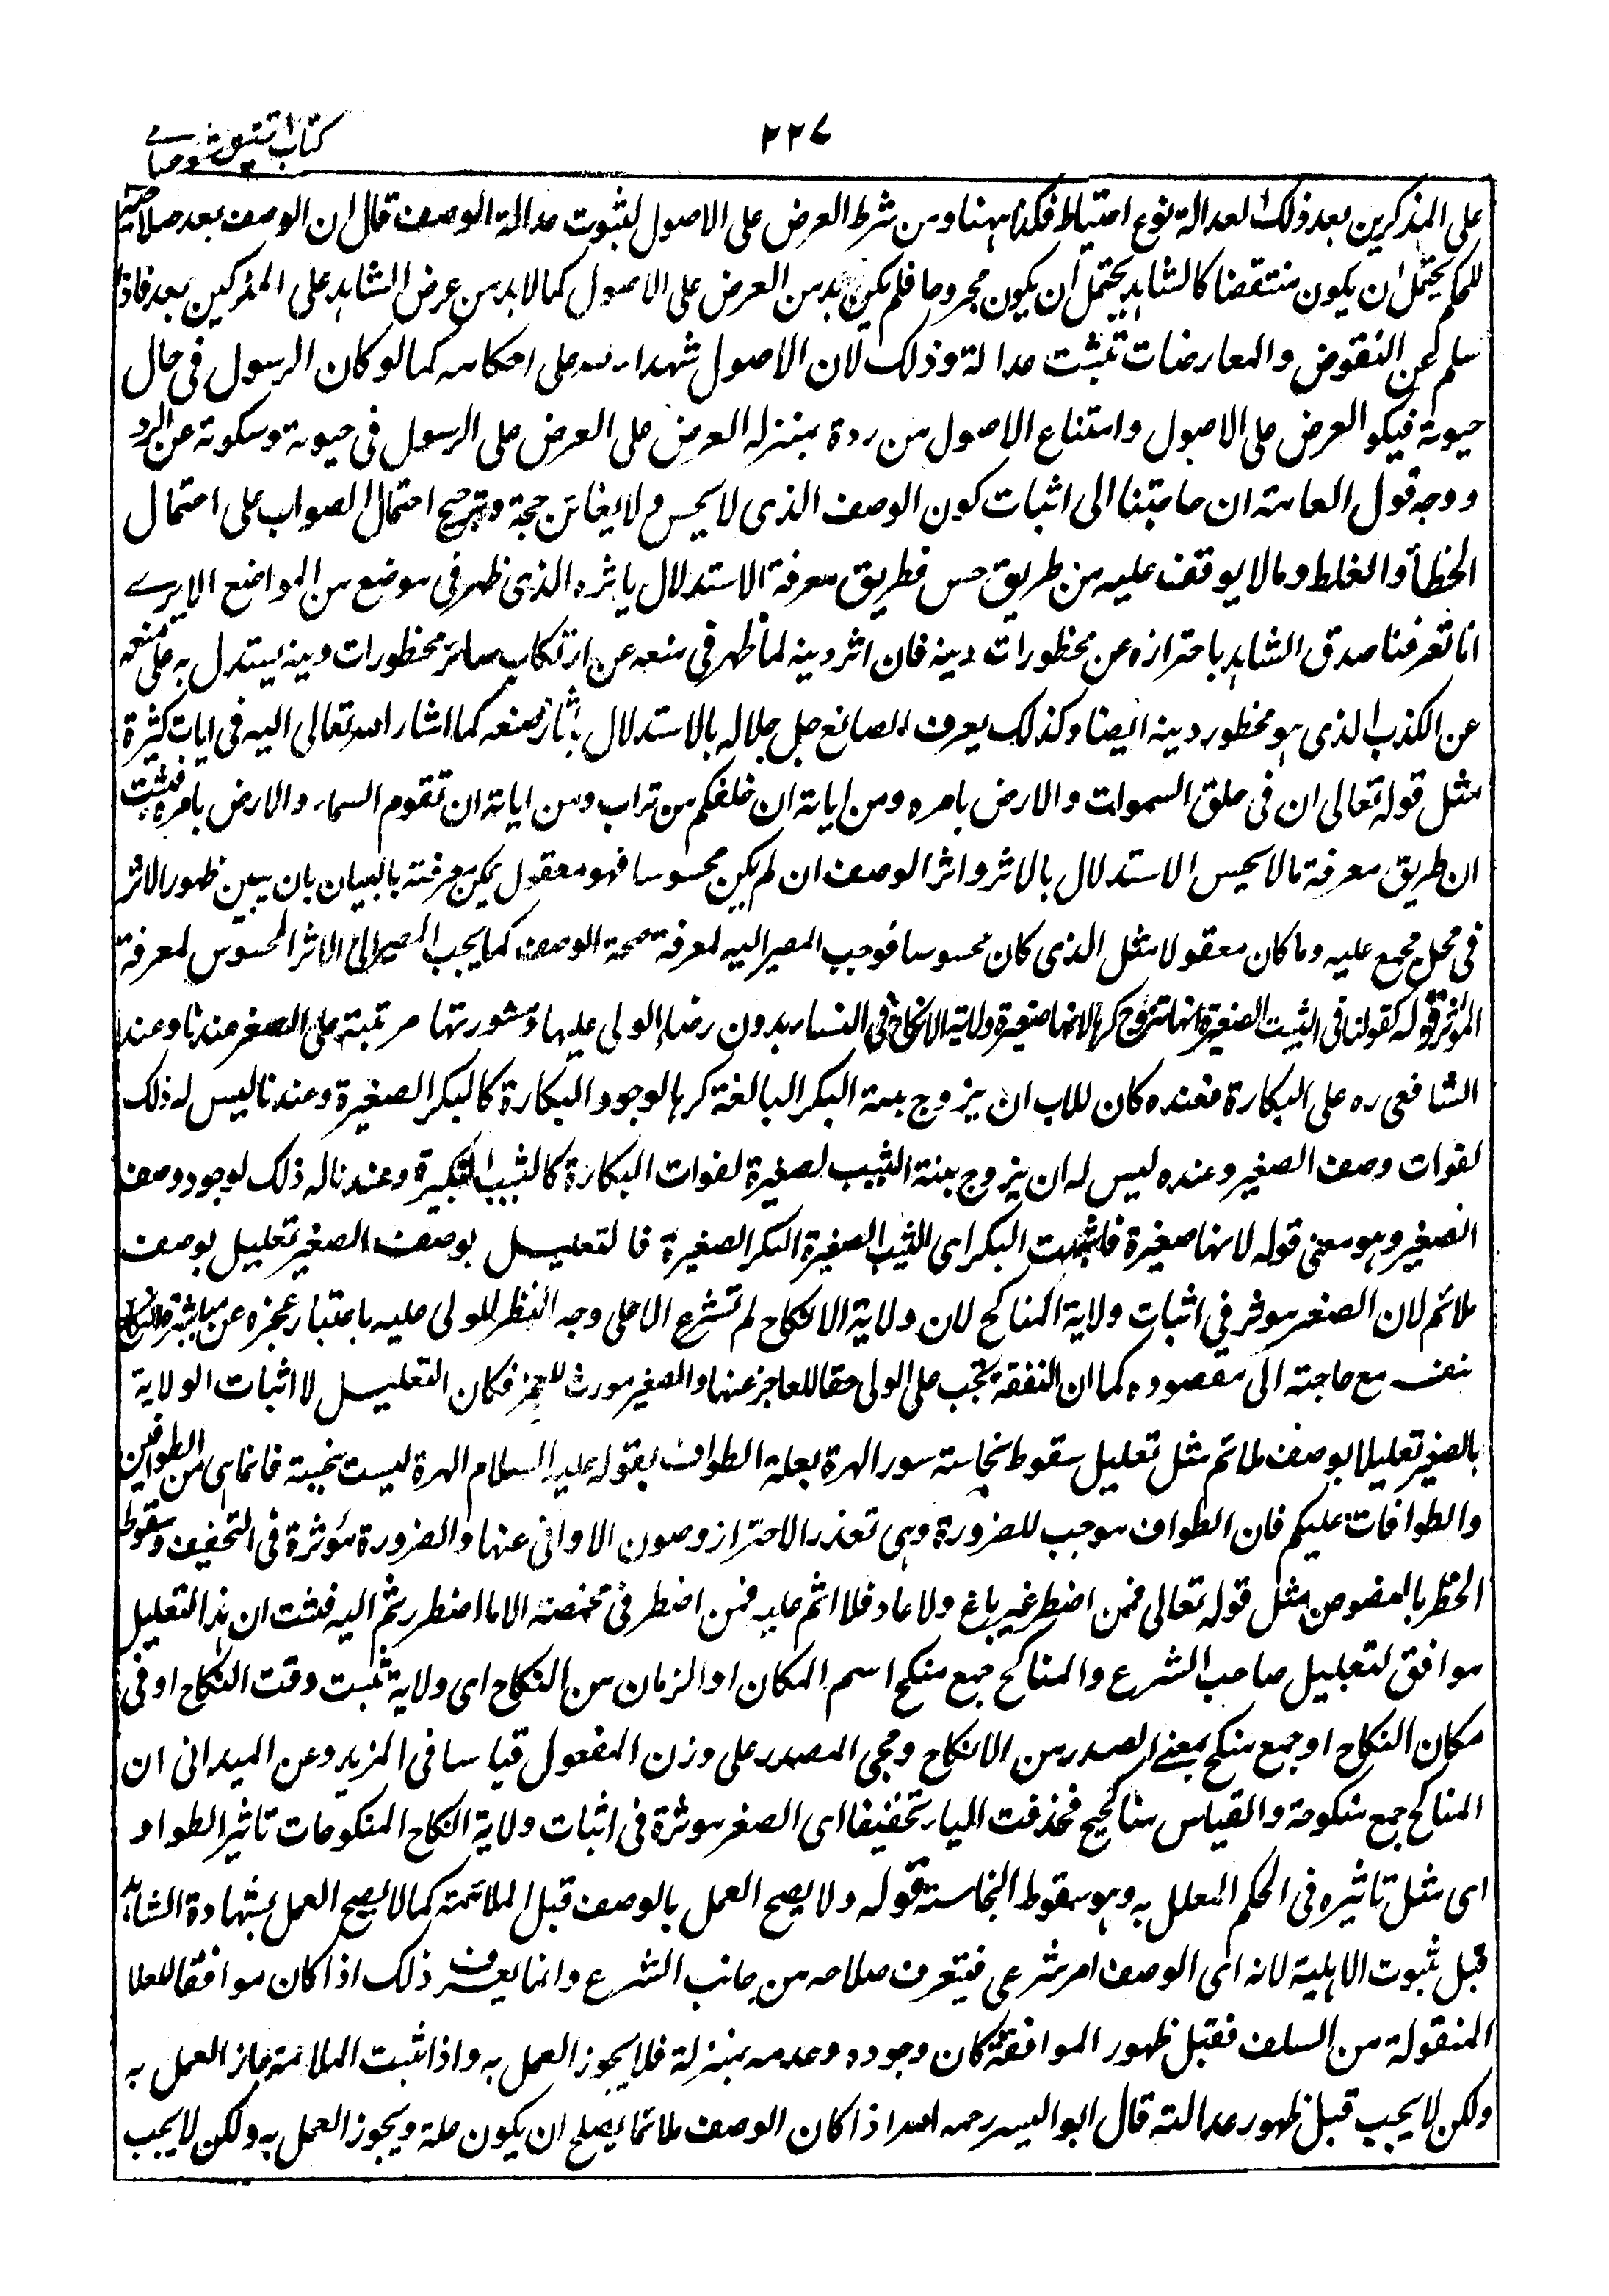 ۲۲۷
كتاب التحقيق شرح حسامى
على المذكرين بعد ذلك لعدالة نوع احتياط فكذا ههنا ومن شرط العرض على الاصول لثبوت عدالة الوصف قال ان الوصف بعد صلاحيته
للحكم يحتمل ان يكون منتقضا كالشاهد يحتمل ان يكون مجروحا فلم يكن بد من العرض على الاصول كما لا بد من عرض الشاهد على المزكين بعد فاذا
سلم عن النقوض والمعارضات تثبت عدالة وذلك لان الاصول شهداء لله على احكامه كما لو كان الرسول فى حال
حيوته فيكو العرض على الاصول وامتناع الاصول من ردة بمنزله العرض على العرض على الرسول فى حيوته وسكوته عن الرد
ووجه قول العامة ان حاجتنا الى اثبات كون الوصف الذى لا يحس ولا يعاين حجة وترجيح احتمال الصواب على احتمال
الخطأ والغلط وما لا يوقف عليه من طريق حس فطريق معرفة الاستدلال باثره الذى ظهر فى موضع من المواضع الا يرى
انا تعرفنا صدق الشاهد باحترازه عن محظورات دينه فان اثر دينه لما ظهر فى منعه عن ارتكاب سائر محظورات دينه يستدل به على منعه
عن الكذب الذى هو محظور دينه ايضا وكذلك يعرف الصانع جل جلاله بالاستدلال باثار صنعه كما اشار الله تعالى اليه فى ايات كثيرة
مثل قوله تعالى ان فى خلق السموات والارض بامره ومن اياته ان خلقكم من تراب ومن اياته ان تقوم السماء والارض بامره فثبت
ان طريق معرفة ما لا يحس الاستدلال بالاثر واثر الوصف ان لم يكن محسوسا فهو معقول يمكن معرفته بالبيان بان يبين ظهور الاثر
فى محل مجمع عليه وما كان معقولا مثل الذى كان محسوسا فوجب المصير اليه لمعرفة صحة الوصف كما يجب المصير الى الاثر المحسوس لمعرفة
المؤثر قوله كقولنا فى الثيب الصغيرة انها تزوج كرها لانها صغيرة ولاية الانكاح فى النساء بدون رضاء الولى عليها ومشورتها مرتبة على الصغر عندنا وعند
الشافعى ره على البكارة فعنده كان للاب ان يزوج بنته البكر البالغة كرها لوجود البكارة كالبكر الصغيرة وعندنا ليس له ذلك
لفوات وصف الصغر وعنده ليس له ان يزوج بنته الثيب لصغيرة لفوات البكارة كالثيب الكبيرة وعندنا له ذلك لوجود وصف
الصغر وهو معنى قوله لانها صغيرة فاشبهت البكر اى الثيب الصغيرة البكر الصغيرة فالتعليل بوصف الصغر تعليل بوصف
ملائم لان الصغر موثر فى اثبات ولاية المناكح لان ولاية الانكاح لم تشرع الا على وجه النظر للولى عليه باعتبار عجزه عن مباشرة النكاح
بنفسه مع حاجته الى مقصوده كما ان النفقة تجب على الولى حقا للعاجز عنها والصغر مورث للعجز فكان التعليل لاثبات الولاية
بالصغر تعليلا بوصف ملائم مثل تعليل سقوط نجاسته سور الهرة بعلة الطواف بقوله عليه السلام الهرة ليست بنجسة فانما هى من الطوافين
والطوافات عليكم فان الطواف موجب للضرورة وهى تعذر الاحتراز وصون الاوانى عنها والضرورة مؤثرة فى التخفيف وسقوط
الحظر بالنصوص مثل قوله تعالى فمن اضطر غير باغ ولا عاد فلا اثم عليه فمن اضطر فى مخمصة الا ما اضطررتم اليه فثبت ان هذا التعليل
موافق لتعليل صاحب الشرع والمناكح جمع منكح اسم المكان او الزمان من النكاح اى ولاية تثبت وقت النكاح او فى
مكان النكاح او جمع منكح بمعنى المصدر من الانكاح ومجى المصدر على وزن المفعول قياسا فى المزيد وعن الميدانى ان
المناكح جمع منكوحة والقياس مناكيح فحذفت الياء تخفيفا اى الصغر موثرة فى اثبات ولاية انكاح المنكوحات تاثير الطواف
اى مثل تاثيره فى الحكم المعلل به وهو سقوط النجاسته قوله ولا يصح العمل بالوصف قبل الملائمة كما لا يصح العمل بشهادة الشاهد
قبل ثبوت الاهلية لانه اى الوصف امر شرعى فيتعرف صلاحه من جانب الشرع وانما يعرف ذلك اذا كان موافقا للعلا
المنقولة من السلف فقبل ظهور الموافقة كان وجوده وعدمه بمنزلة فلا يجوز العمل به واذا ثبت الملائمة جاز العمل به
ولكن لا يجب قبل ظهور عدالته قال ابو اليسر رحمه الله اذا كان الوصف ملائما يصلح ان يكون علة ويجوز العمل به ولكن لا يجب